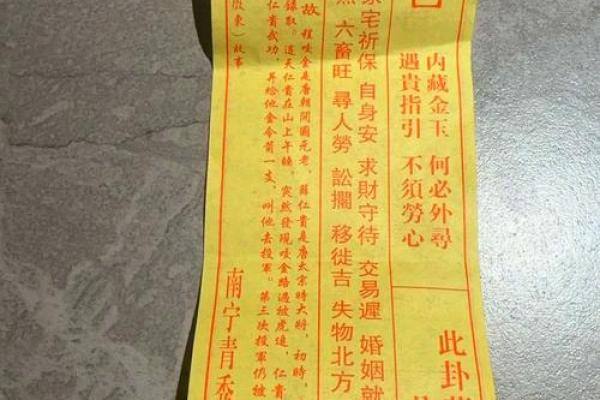 内藏金玉 何必外尋
遇貴指引 不須勞心
此卦
家宅祈保 自身安 求財守待 交易遲 婚姻就
六畜旺 尋人勞 訟擱 移徙吉 失物北方
故
程咬金是唐朝開國元老，薛仁貴是唐太宗時大將，初時，
錄取。這天仁貴在山上午睡。突然發現咬金路過被虎追，仁貴
仁貴武功，并給他金令箭一支，叫他去投軍。第三次投軍仍被
東）故事
南宁青秀